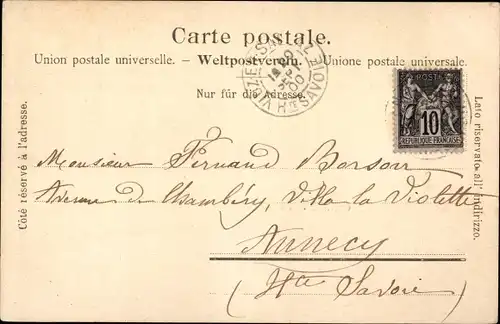 Carte postale.
Union postale universelle. – Weltpostverein. – Unione postale universale.
Nur für die Adresse.
Côté réservé à l'adresse.
Lato riservato all' indirizzo.
Hte SAVOIE
POSTE
10
REPUBLIQUE FRANÇAISE
Monsieur Fernand Borson
Avenue de Chambéry, Villa la Violette
Annecy
(Hte Savoie)